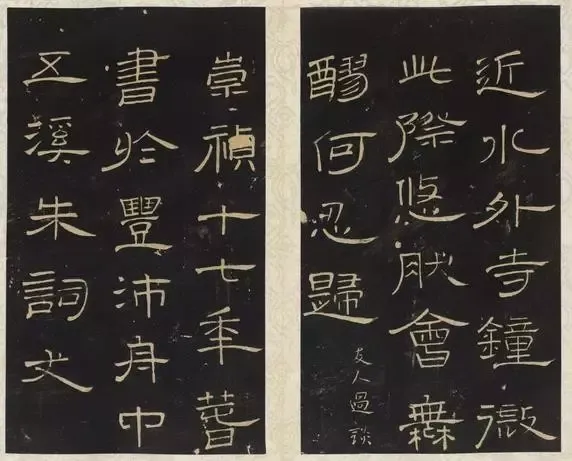 近水外寺鐘微
此際悠肰會無
醪何忍歸
友人過談
崇禎十七年萅
書於豐沛舟中
五溪朱詞